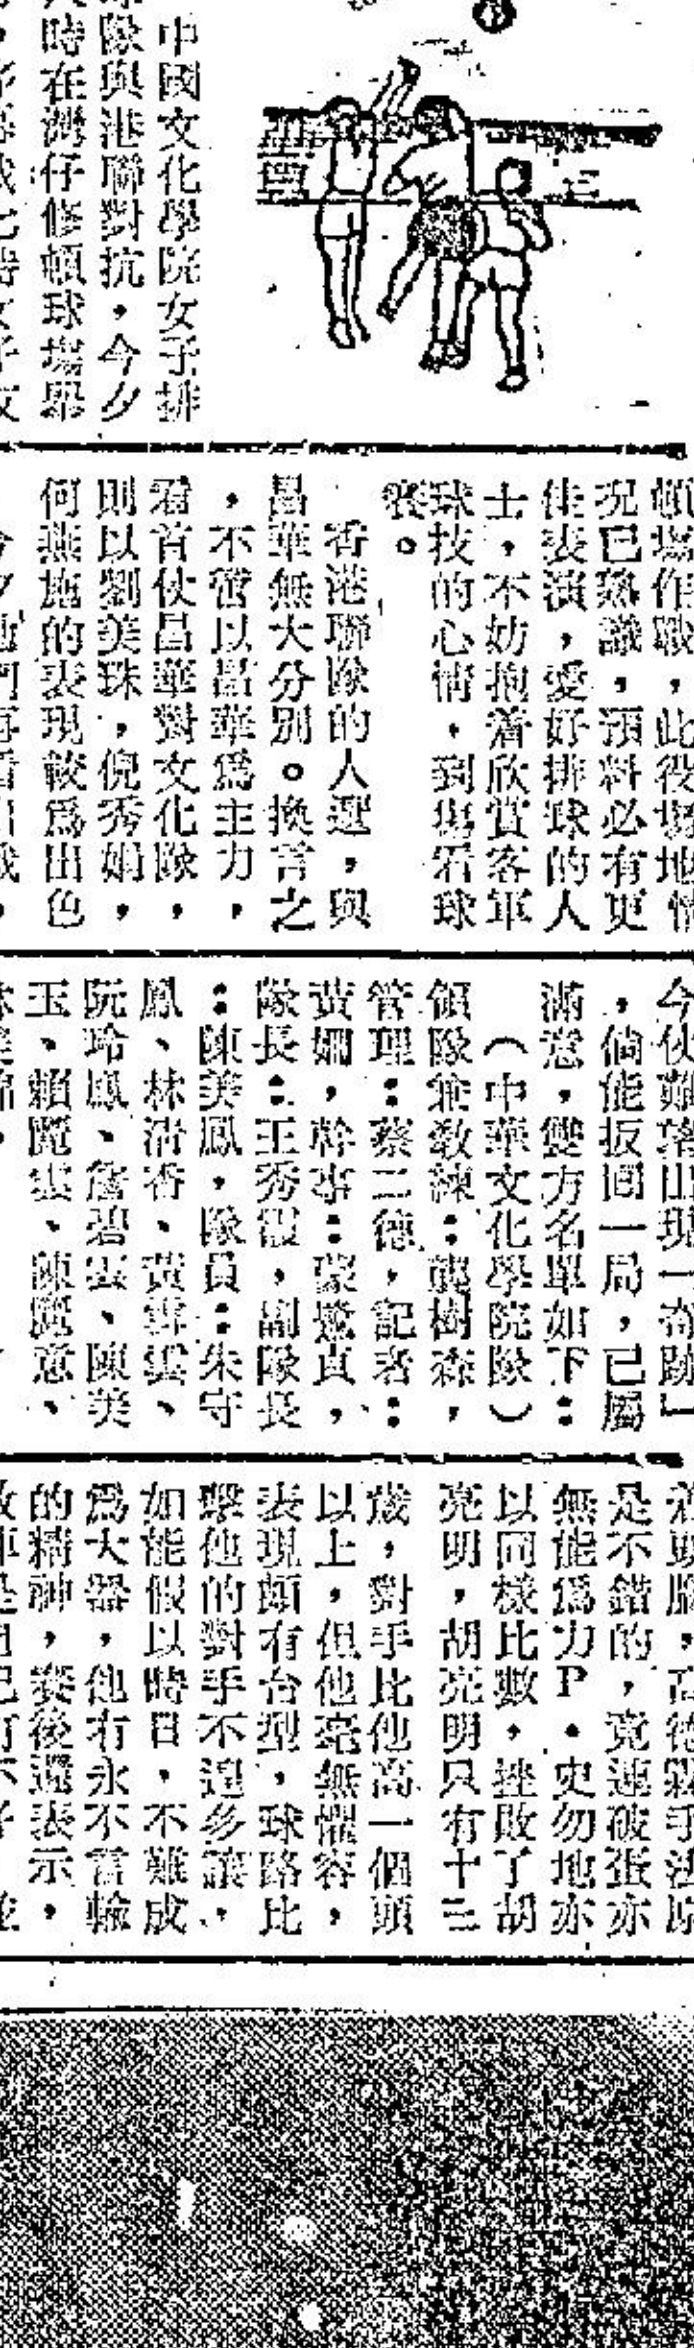 中國文化學院女子排
隊與港聯對抗，今夕
時在灣仔修頓球塲舉
頓塲作戰，此役塲地情
况已熟識，預料必有更
佳表演，愛好排球的人
士，不妨抱着欣賞客軍
球技的心情，到塲看球
賽。
香港聯隊的人選，與
昌華無大分別。換言之
，不啻以昌華爲主力，
看首仗昌華對文化隊，
則以劉美珠，倪秀娟，
何燕施的表現較爲出色
今仗難望出現一奇跡」
，倘能扳囘一局，已屬
滿意，雙方名單如下：
（中華文化學院隊）
領隊兼教練：樹森，
管理：蔡二德，記者：
黃嫻，幹事：蒙貞，
隊長：王秀，副隊長
：陳美鳳，隊員：朱守
鳳、林清香、黃雪雲、
阮玲鳳、詹碧雲、陳美
玉、賴麗雲、陳麗意、
是不錯的，竟連破蛋亦
無能爲力P．史勿地亦
以同樣比數，挫敗了胡
亮明，胡亮明只有十三
歲，對手比他高一個頭
以上，但他毫無懼容，
表現頗有台型，球路比
擊他的對手不遑多讓，
如能假以時日，不難成
爲大器，他有永不言輸
的精神，賽後還表示，